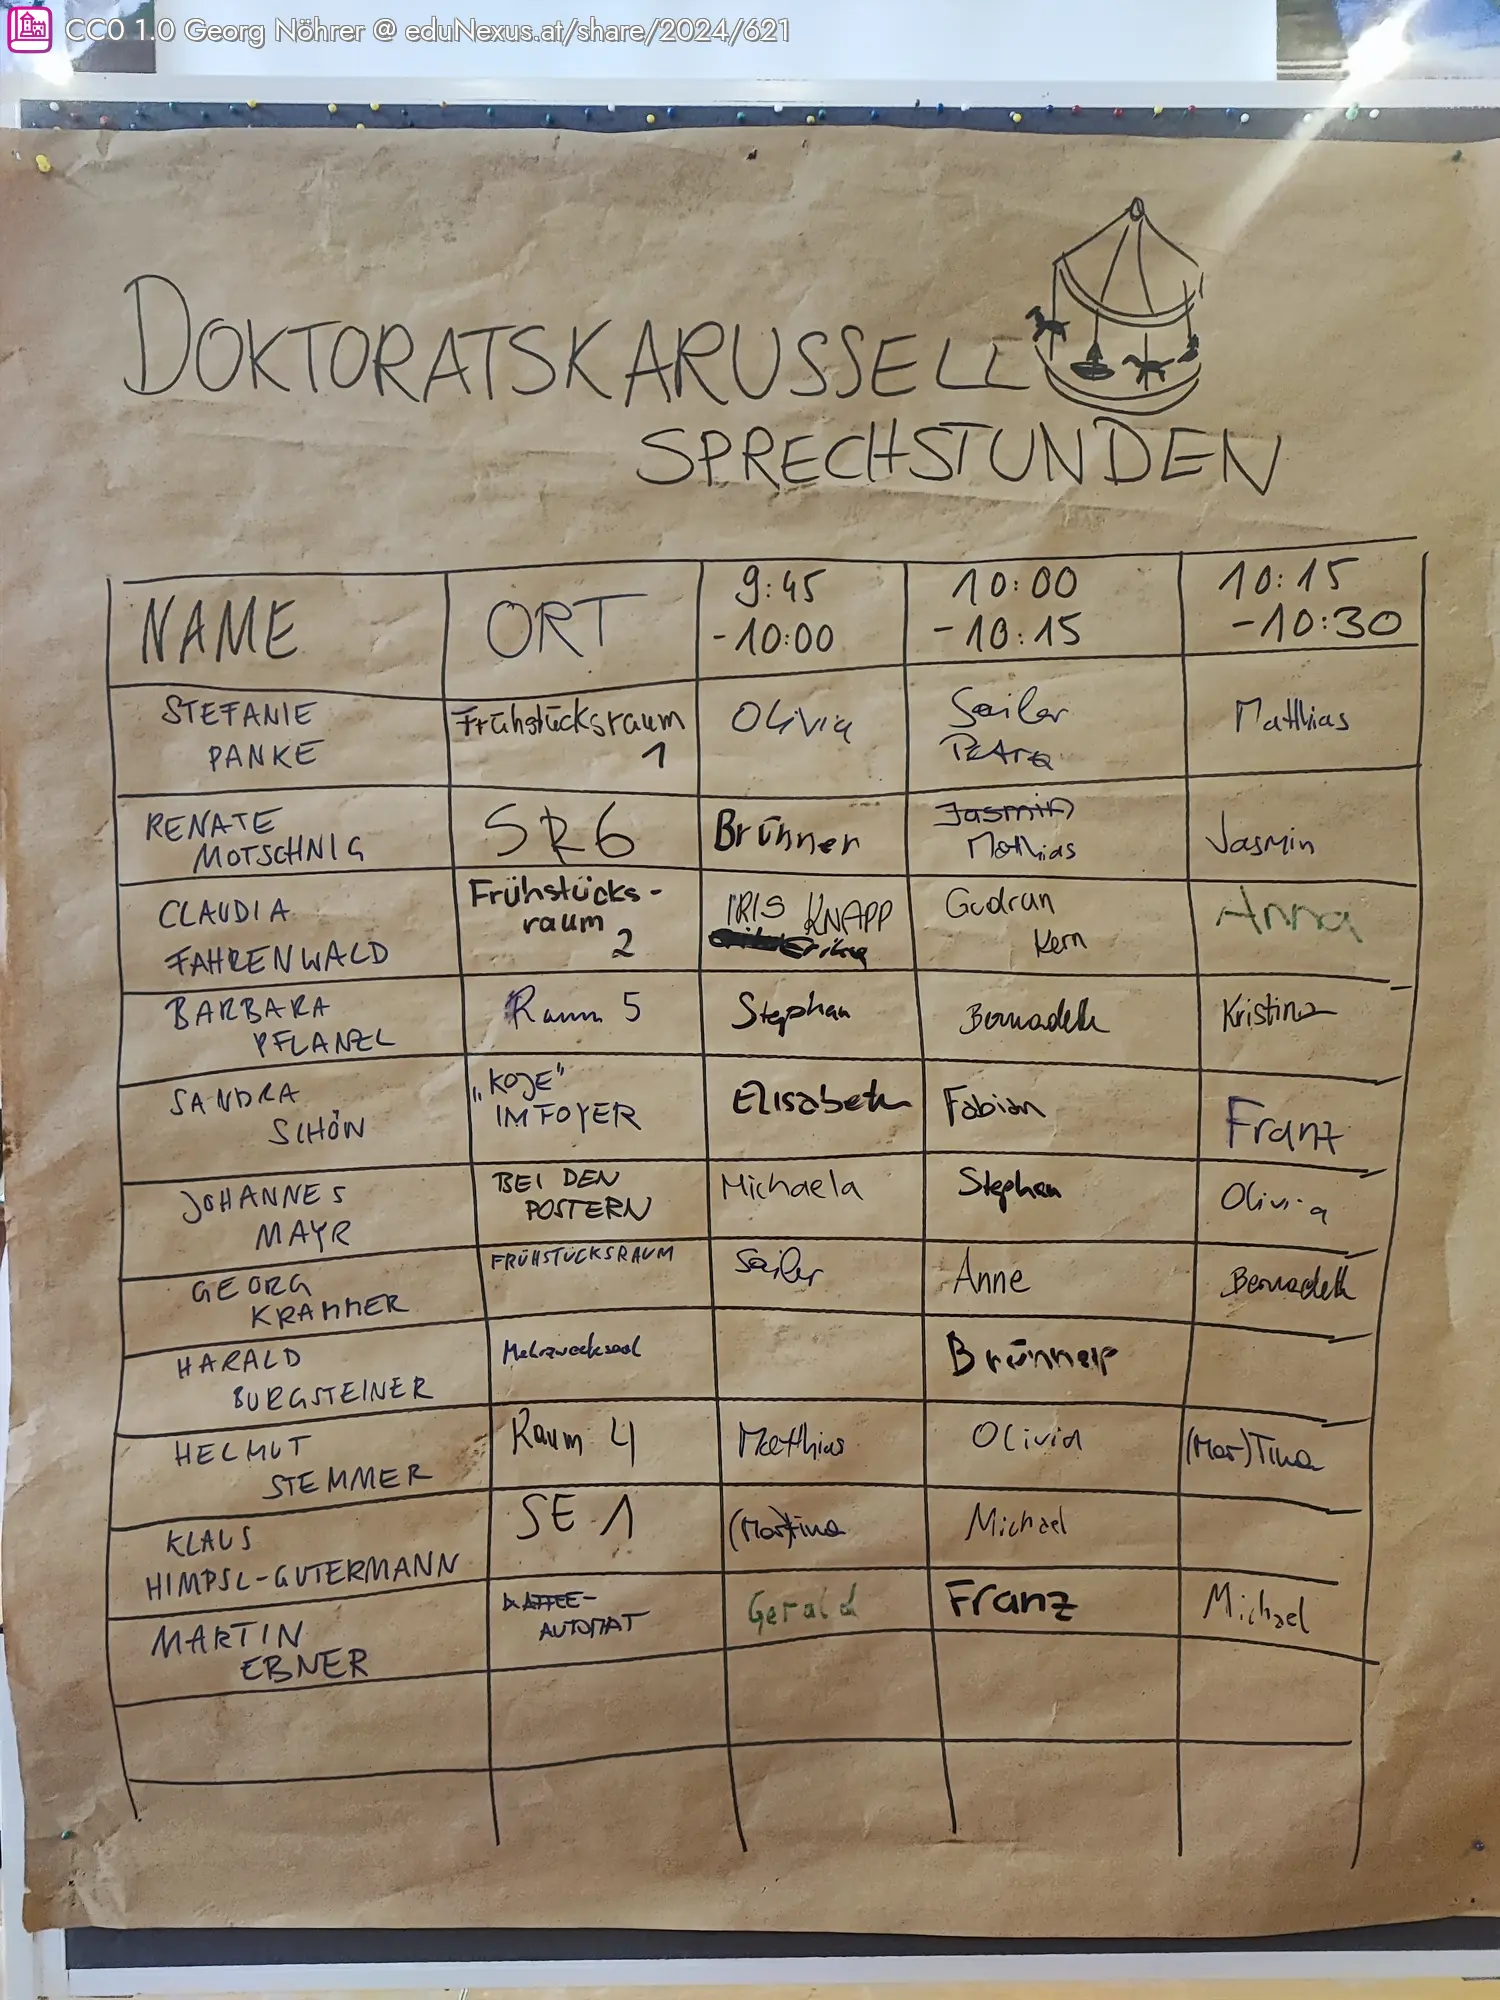 CC0 1.0 Georg Nöhrer @ eduNexus.at/share/2024/621
DOKTORATSKARUSSELL
SPRECHSTUNDEN
NAME ORT 9:45 -10:00 10:00 -10:15 10:15 -10:30
STEFANIE PANKE Frühstücksraum 1 Olivia Sailer Petra Matthias
RENATE MOTSCHNIG SR6 Brünner Jasmin Mathias Jasmin
CLAUDIA FAHRENWALD Frühstücks-raum 2 IRIS KNAPP Gudrun Kern Anna
BARBARA PFLANZL Raum 5 Stephan Bernadett Kristina
SANDRA SCHÖN „KOJE“ IM FOYER Elisabeth Fabian Franz
JOHANNES MAYR BEI DEN POSTERN Michaela Stephan Olivia
GEORG KRAMMER FRÜHSTÜCKSRAUM Sailer Anne Bernadett
HARALD BURGSTEINER Mehrzwecksaal Brünner
HELMUT STEMMER Raum 4 Matthias Olivia (Mar)Tina
KLAUS HIMPSL-GUTERMANN SE 1 (Mar)tina Michael
MARTIN EBNER KAFFEE-AUTOMAT Gerald Franz Michael